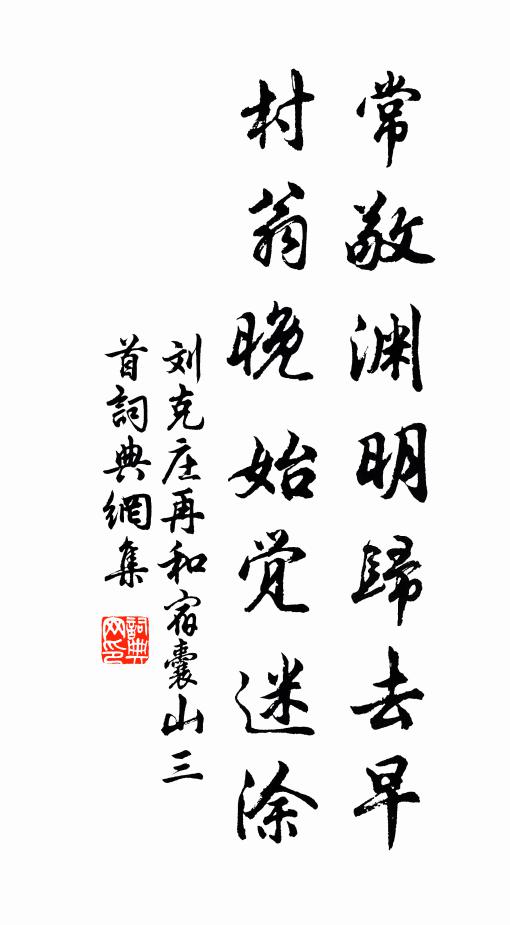 常敬渊明歸去早
村翁晚始覚迷涂
刘克庄再和宿囊山三
首詞典網集
詞典網印